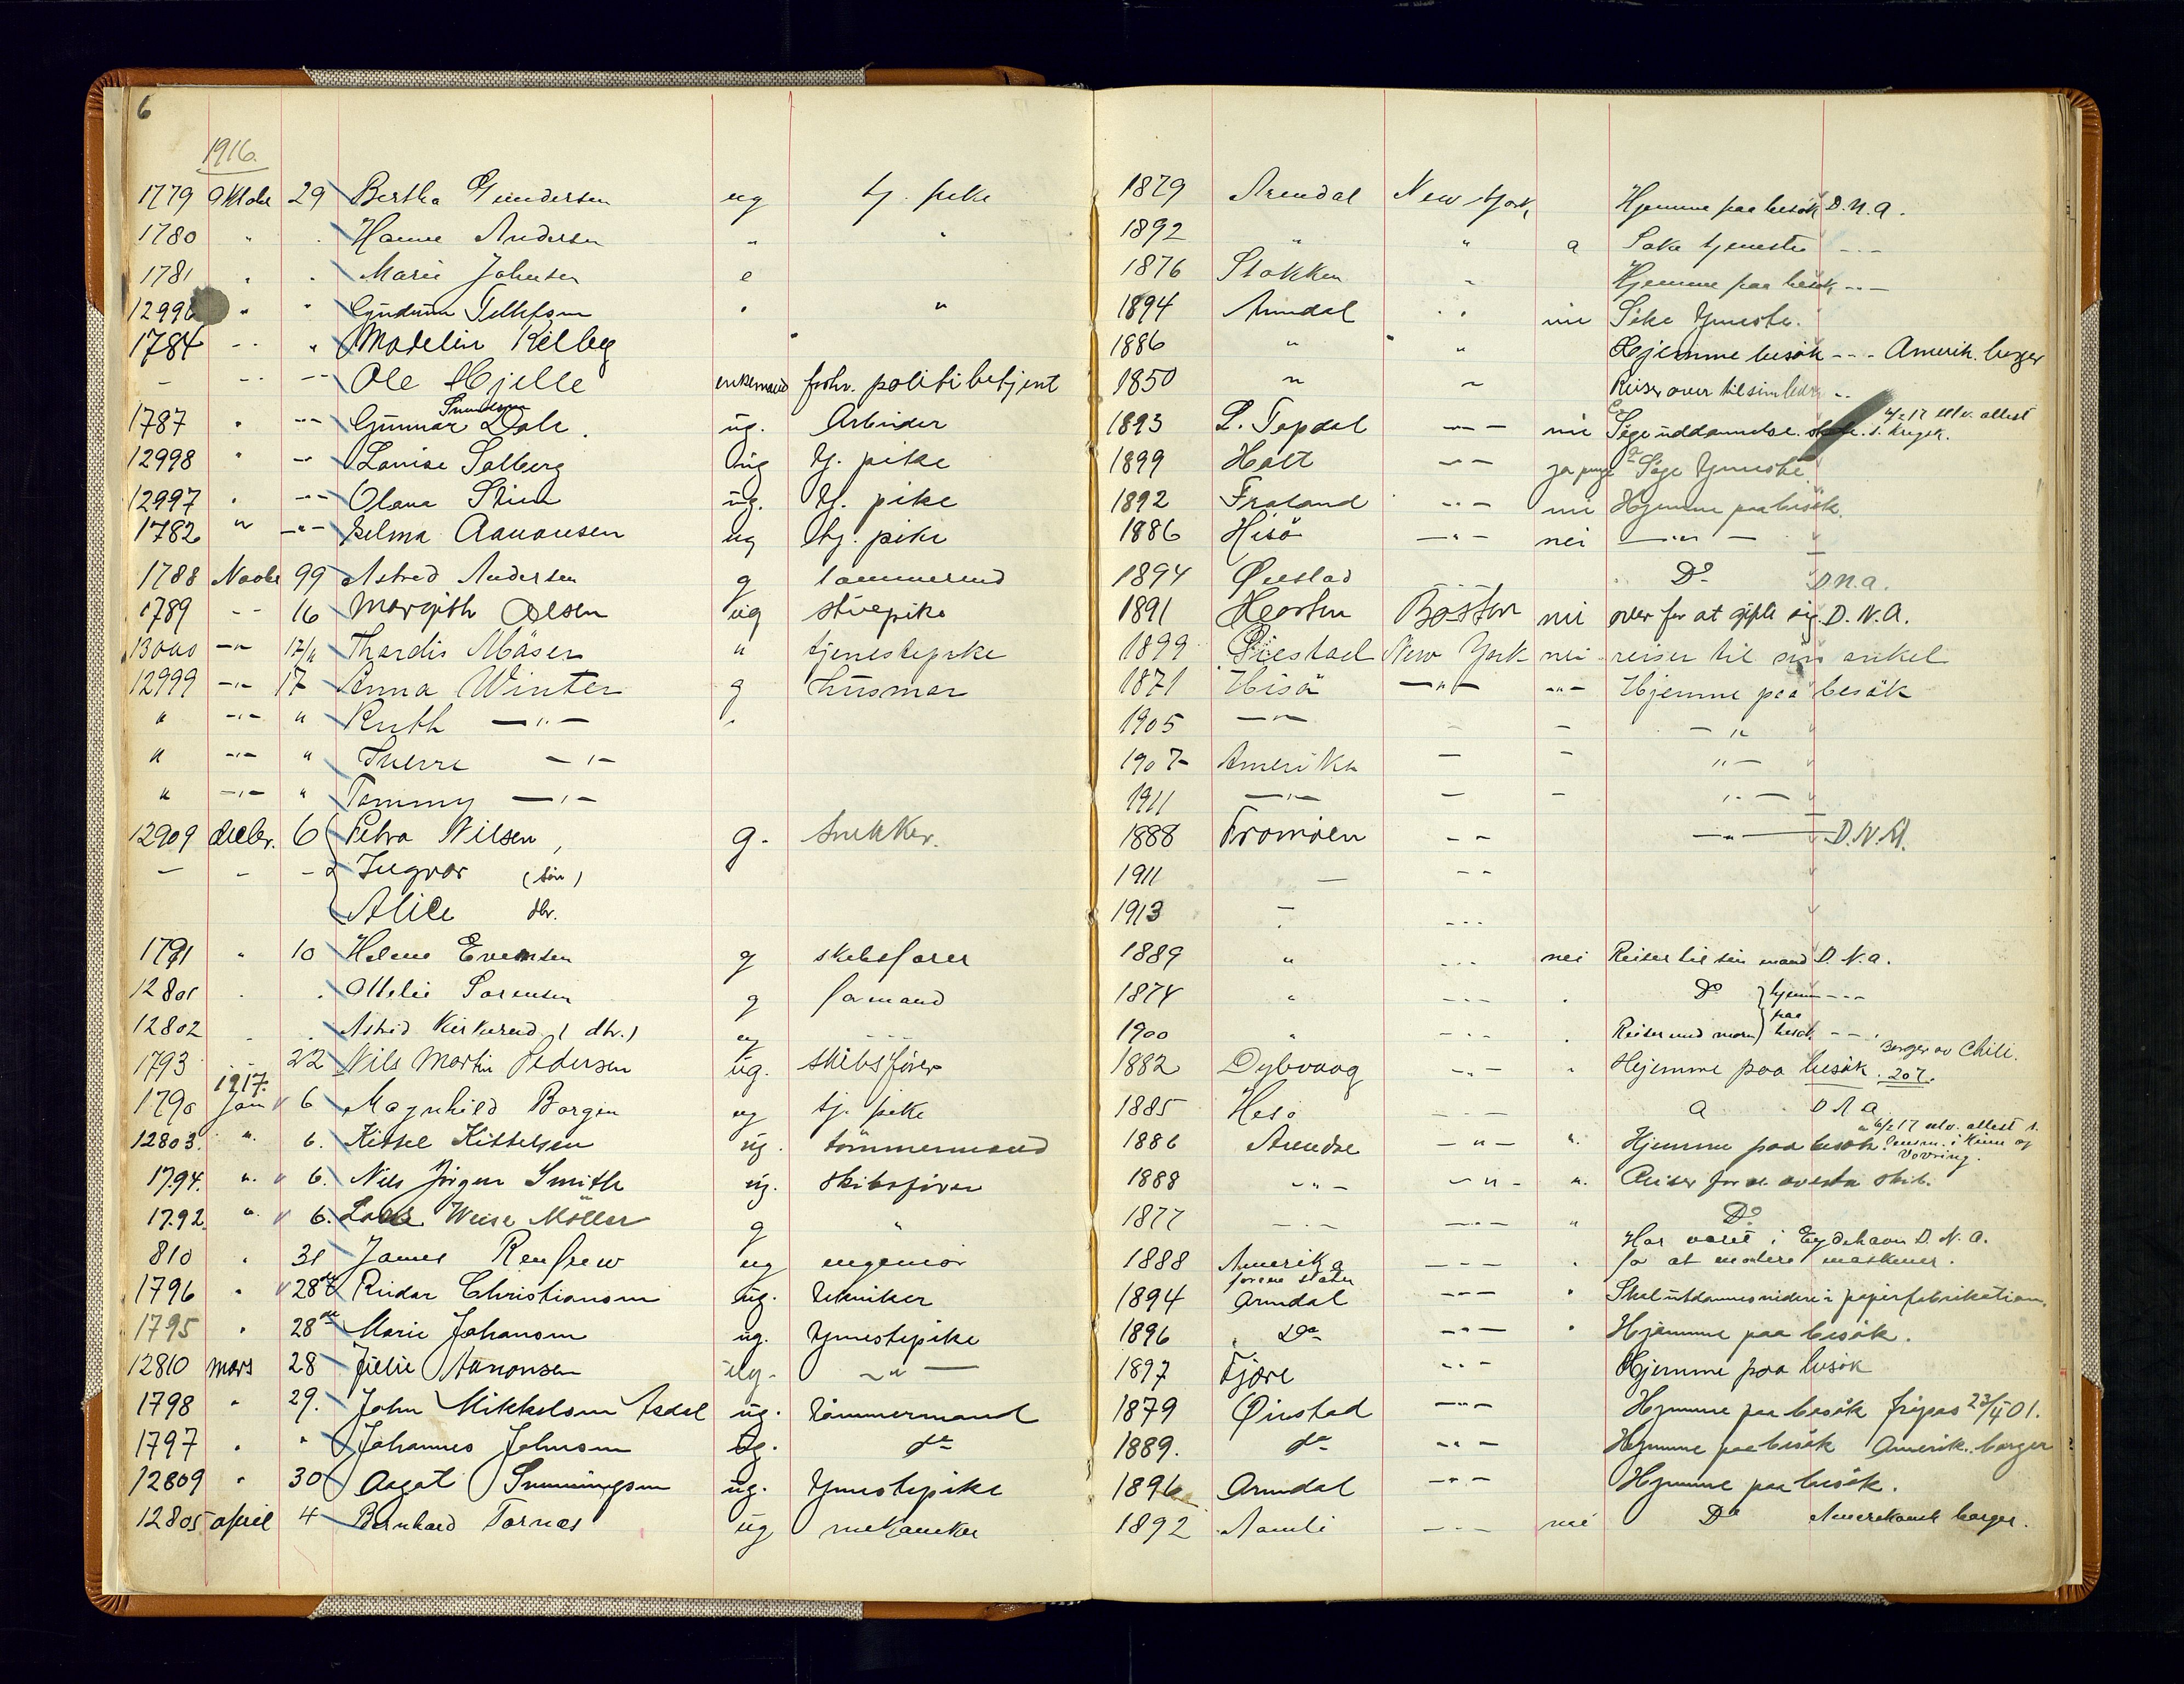 6
1916.
1779 Oktobr 29 Bertha Gundersen ug tj. pike 1879 Arendal New York Hjemme paa besök D.N.A.
1780 " . Hanne Andersen " " 1892 " " a Søke tjeneste - - -
1781 . . Marie Johnsen e 1876 Stokken " Hjemme paa besök - - -
12996 " " Gudrun Tellefsen . " 1894 Arendal . . nei Söke tjeneste.
1784 - - " Madelin Kilbeg " 1886 " " Hjemme besök - - - Amerik. borger
- - - - - Ole Hjelle enkemand forhv. politibetjent 1850 " " Reiser over til sin
1787 " - - - Gunnar Dale. ug. Arbeider 1893 L. Topdal - - - nei Söge uddannelse. 6/2 17 utv. attest
12998 " - - Louise Solberg ug tj. pike 1899 Holt - - - Söge tjeneste.
12997 . - - - Olava Stien ug. tj. pike 1892 Froland - - - nei Hjemme paa besök.
1782 " - " - Selma Aanonsen ug tj. pike 1886 Hisö - " - nei - " -
1788 Novbr 99 Astrid Andersen g tömmermd 1894 Øiestad - - - Do D.N.A.
1789 - - 16 Margith Olsen ug stuepike 1891 Boston nei over for at gifte sig D.N.A.
13000 - " - 17/11 Thordis Mäser " tjenestepike 1899 Øiestad New York nei reiser til sin onkel
12999 - " - 17 Anna Winter g husmor 1871 Hisö - " - - " - Hjemme paa besök
" - " - " Ruth - " - " 1905 - " - - - - "
" - " - " Sverre - " - 1907 Amerika - - " -
" - " - " Tommy - " - 1911 - " - - - " -
12909 decbr. 6 Petra Nilsen, g. snekker. 1888 Tromöen - - - " - D.N.A.
- - - Ingvar (sön) 1911 - - -
Alice dtr. 1913 - - - -
1791 " 10 Helene Evensen g skibsfører 1889 " - - - nei Reiser til sin mand D.N.A.
12801 . . Ottelie Sørensen g formand 1874 " - - - . Do } hjem - - -
12802 . . Astrid Kirkerud (dtr.) ug - - - 1900 " - - - . Reiser med moren } paa besök - - .
1793 - 22 Nils Martin Pedersen ug. skibsförer 1882 Dybvaag - " - " Hjemme paa besök. 207. borger av Chili.
1917.
1790 Jan 6 Magnhild Borgen ug tj. pike 1885 Hisø - - - a D N A
12803. " 6. Kittel Kittelsen ug. tömmermand 1886 Arendal - " - ". Hjemme paa besök. 6/2 17 utv. attest t. lensm. i Kinn og Vevring.
1794. " 6. Nils Jörgen Smith ug. skibsförer 1888 - " - - " - ". Reiser for at overta skib.
1792. " 6. Weise Möller g " 1877 - . - - " - " Do
810 . 31 James Renfrew ug ingeniør 1888 Amerika forene stater - - - . Har været i Eydehavn D.N.A. for at montere maskiner.
1796 " 28de Reidar Christiansen ug. tekniker 1894 Arendal - - - " Skal utdannes videre i papirfabrikation.
1795 " 28de Marie Johansen ug. tjenestepike 1896 Do - - - " Hjemme paa besök.
12810 mars 28 Julie Aanonsen ug. - " - 1897 Fjære - - - Hjemme paa besök
1798 " 29. John Mikkelsen Asdal ug. tömmermand 1879 Øiestad - " - Hjemme paa besök fripas 23/4 01.
1797 . " Johannes Johnsen ug. do 1889. do - " - Hjemme paa besök Amerik. borger
12809 " 30 Aagot Sunningsen ug. tjenestepike 1896 Arendal - " - Hjemme paa besök.
12805 april 4 Bernhard Tornes ug mekaniker 1892 Aamli - - - nei Do Amerikansk borger.